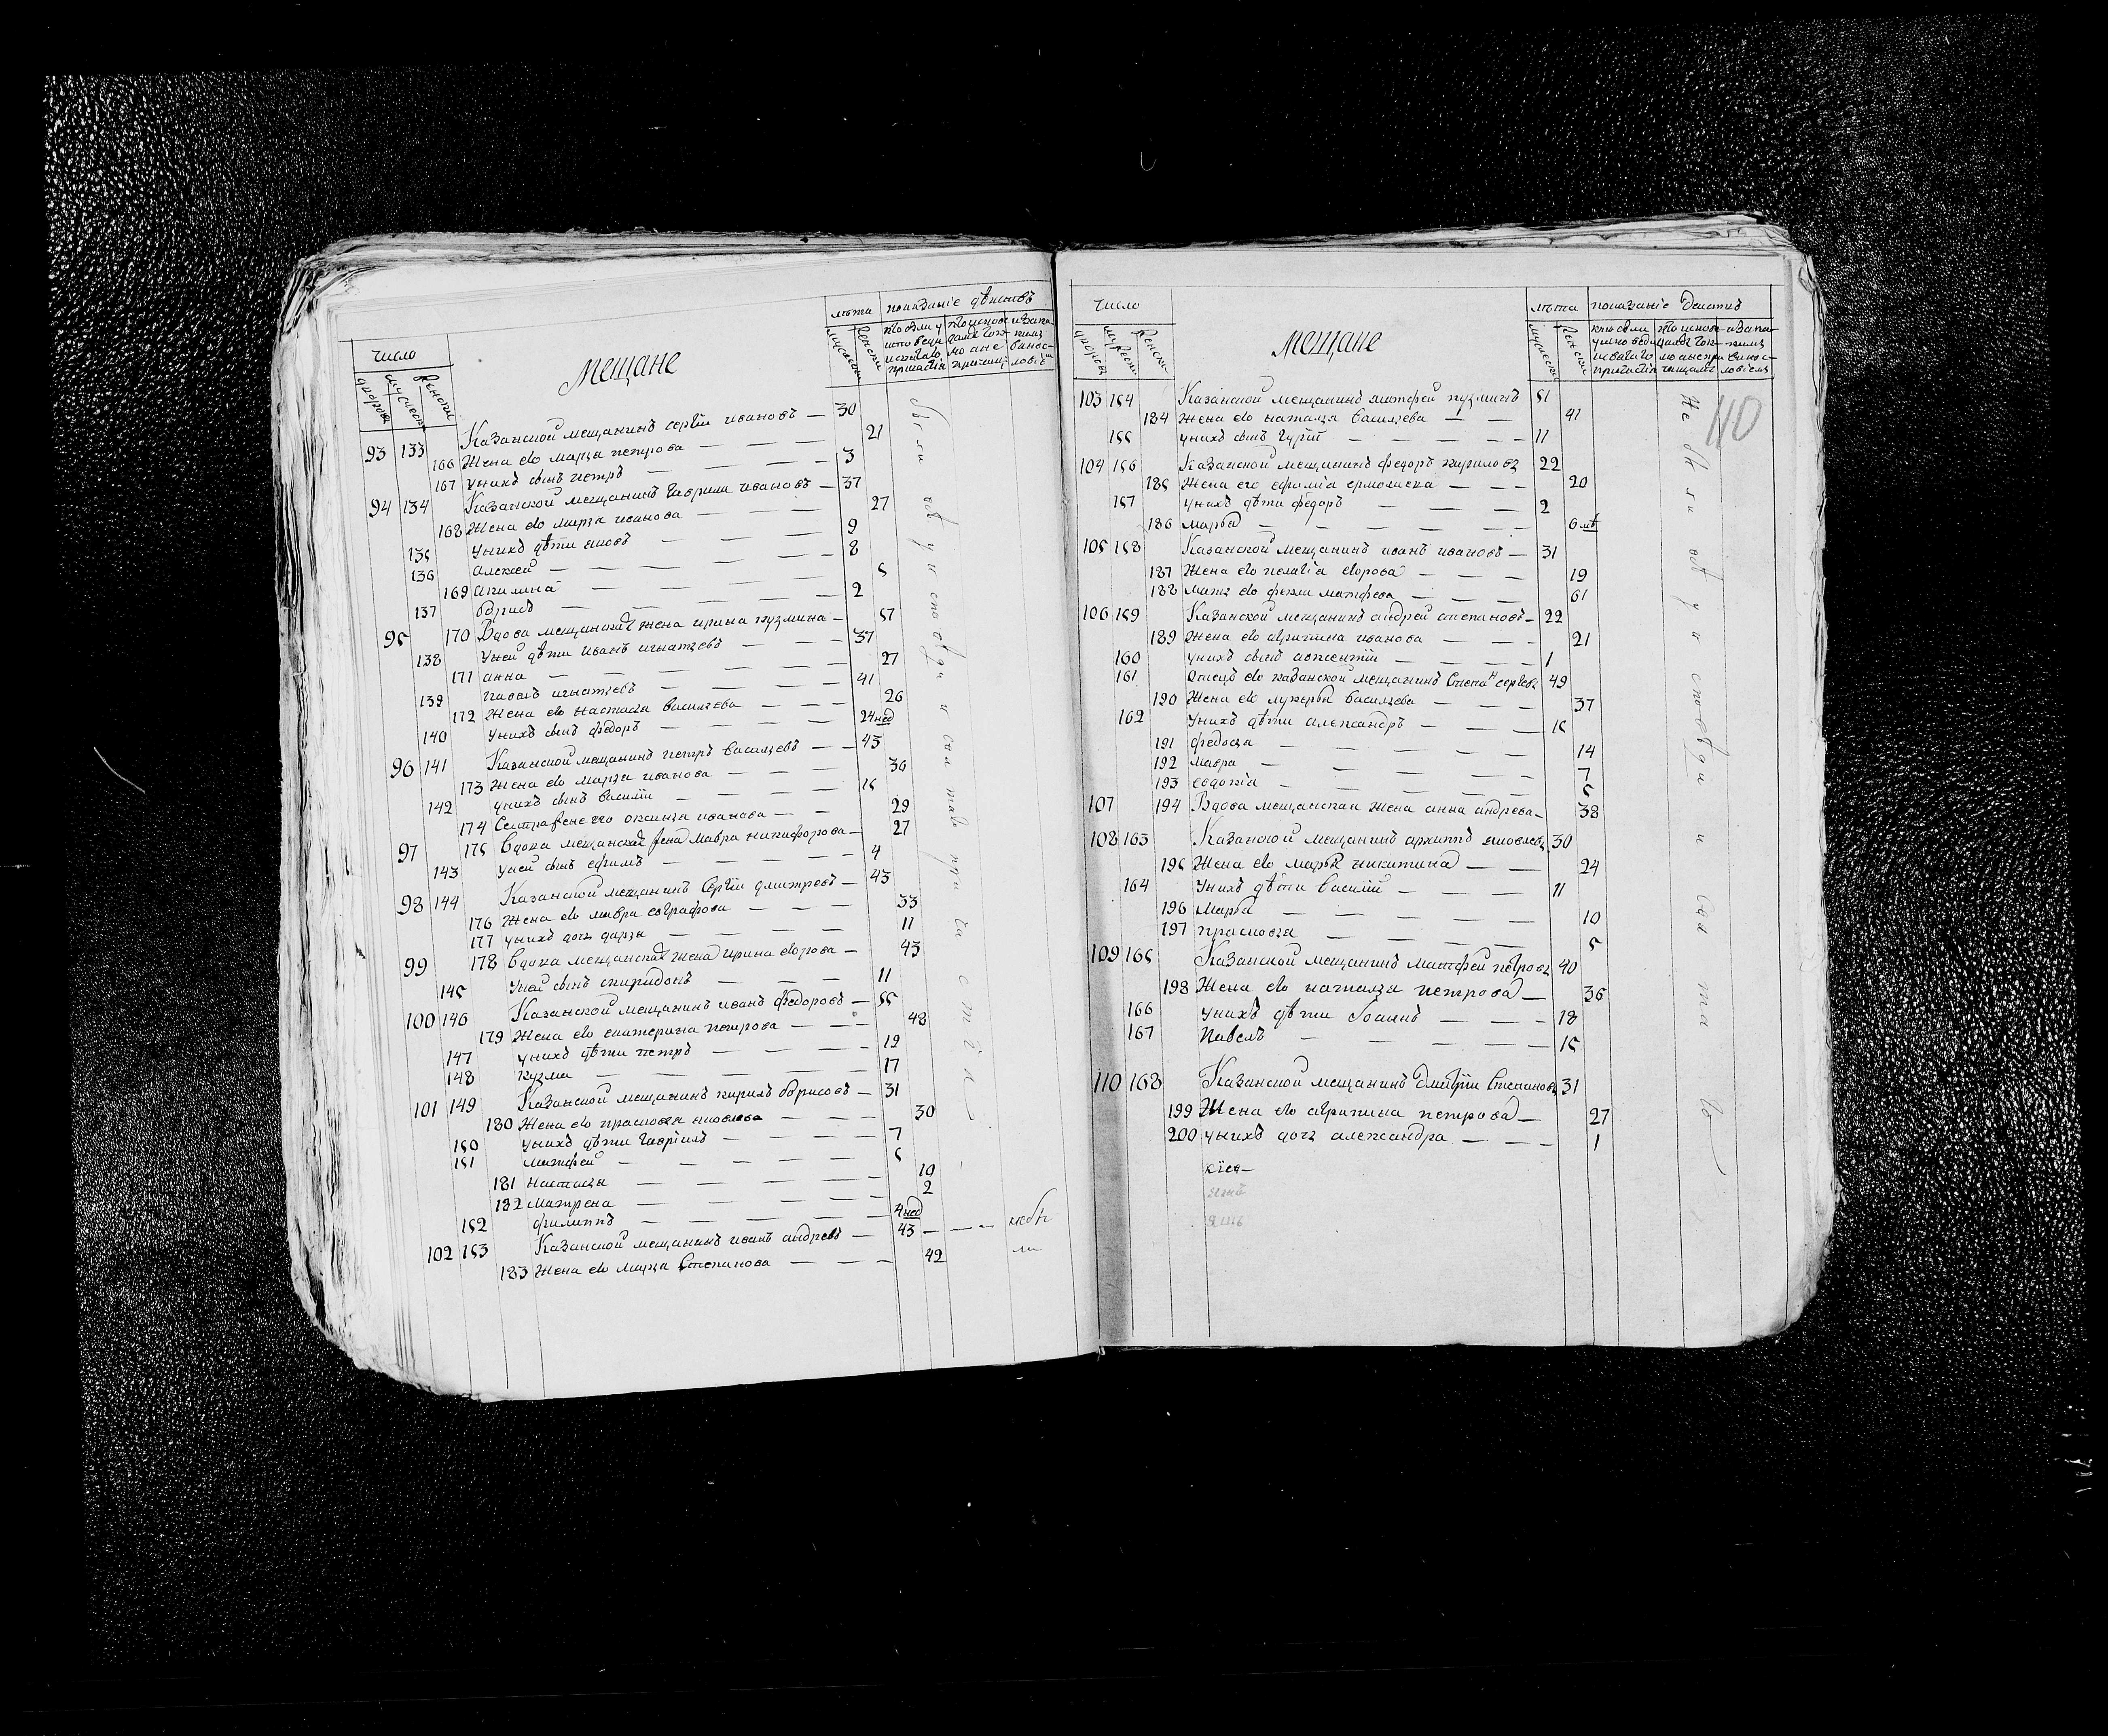 число
лѣта показанiе дѣиствъ
мещане
дворовъ мужеска женска мужеска женска
93 133 Казанской мещанинъ сергiи ивановъ — 30
166 Жена ево марѳа петрова — — — 21
167 унихъ сынъ петръ — — — 3
94 134 Казанской мещанинъ гаврила ивановъ — 37
168 Жена ево марѳа иванова — — — 27
135 унихъ дѣти яковъ — — — 9
136 алексей — — — 8
169 акилина — — — 5
137 борисъ — — — 2
95 170 Вдова мещанская жена ирина кузмина — 57
138 уней дѣти иванъ игнатьевъ — — 37
171 анна — — — 27
139 павелъ игнатьевъ — — — 41
172 Жена ево настасья васильева — — 26
140 унихъ сынъ федоръ — — — 24 нед
96 141 Казанской мещанинъ петръ васильевъ — — 43
173 Жена ево марѳа иванова — — — 36
142 унихъ сынъ василiи — — — 15
174 Сестра его оксинья иванова — — 29
97 175 Вдова мещанская жена мавра никифорова — 27
143 уней сынъ ефимъ — — — 4
98 144 Казанской мещанинъ Сергiи дмитревъ — 43
176 Жена ево мавра евграфова — — — 33
177 унихъ дочь дарья — — — 11
99 178 Вдова мещанская жена ирина егорова — 43
145 уней сынъ спиридонъ — — — 11
100 146 Казанской мещанинъ иванъ федоровъ — 55
179 Жена ево екатерина петрова — — — 48
147 унихъ дѣти петръ — — — 19
148 кузма — — — 17
101 149 Казанской мещанинъ кирилъ борисовъ — 31
180 Жена ево прасковья яковлева — — — 30
150 унихъ дѣти гаврiилъ — — — 7
151 матфей — — — 5
181 настасья — — — 10
182 матрена — — — 2
152 филиппъ — — — 4 нед
102 153 Казанской мещанинъ иванъ андревъ — 43 — — — небы
183 Жена ево марѳа Степанова — — — 42 ли
были всѣ у исповѣди и святаго причастiя
число
лѣта показанiе деиствъ
мещане
дворовъ мужеска женска мужеска женска
110
103 154 Казанской мещанинъ матфей кузминъ 51
184 Жена ево наталья васильева — — 41
155 унихъ сынъ гурiй — — — 11
104 156 Казанской мещанинъ федоръ кириловъ 22
185 Жена его ефимiа ермолаева — — — 20
157 унихъ дѣти федоръ — — — 2
186 марѳа — — — 6 мѣ
105 158 Казанской мещанинъ иванъ ивановъ — 31
187 Жена ево пелагiа егорова — — — 19
188 мать ево фекла матфева — — — 61
106 159 Казанской мещанинъ андрей степановъ — 22
189 Жена ево акулина иванова — — — 21
160 унихъ сынъ — — — 1
161 Отецъ ево казанской мещанинъ Степанъ сергевъ 49
190 Жена ево лукерья васильева — — — 37
162 унихъ дѣти александръ — — — 15
191 федосья — — — 14
192 мавра — — — 7
193 евдокiа — — — 5
107 194 Вдова мещанская жена анна андрева — 38
108 163 Казанской мещанинъ архиппъ яковлевъ 30
195 Жена ево марѳа никитина — — 24
164 унихъ дѣти василiй — — — 11
196 Марѳа — — — 10
197 прасковья — — — 5
109 165 Казанской мещанинъ матфей петровъ 40
198 Жена ево наталья петрова — 36
166 унихъ дѣти Iоаннъ — — — 18
167 Павелъ — — — 15
110 168 Казанской мещанинъ Дмитрiи Степановъ 31
199 Жена ево агрипина петрова — 27
200 унихъ дочь александра — — — 1
Не были всѣ у исповѣди и свята го